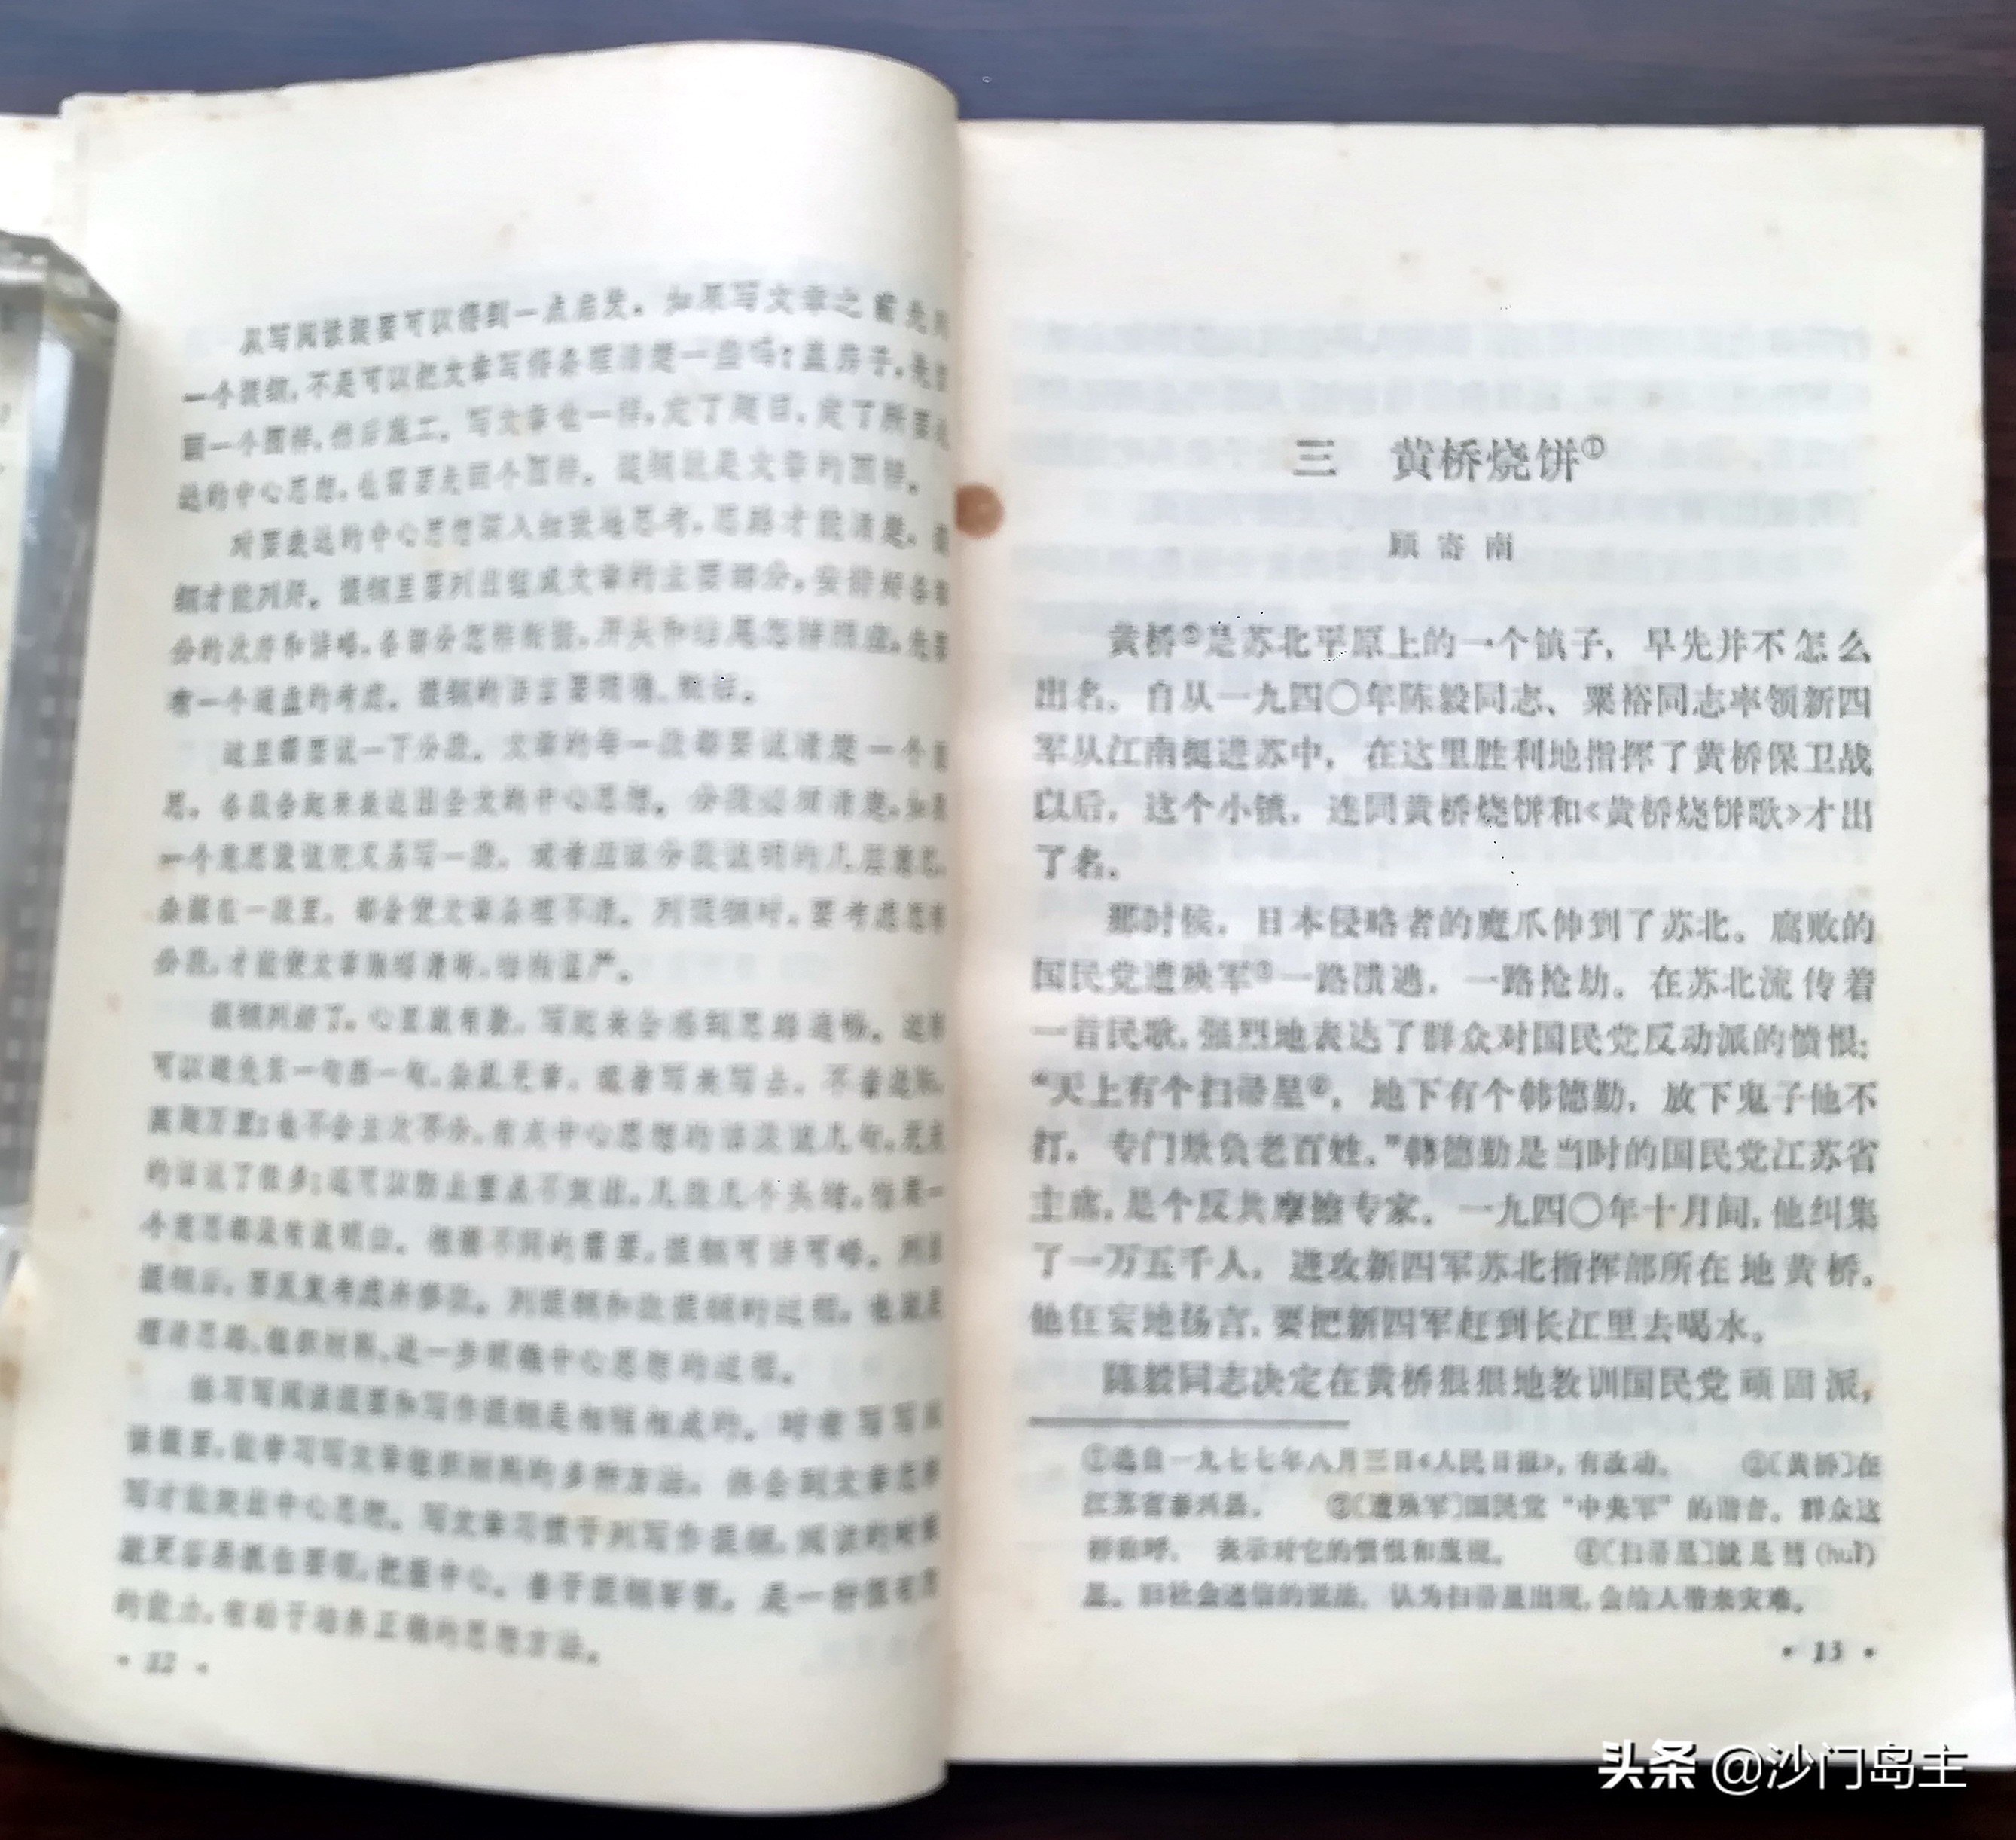 从写阅读提要可以得到一点启发。如果写文章之前先列
一个提纲，不是可以把文章写得条理清楚一些吗？盖房子，先
画一个图样，然后施工。写文章也一样，定了题目，定了所要表
达的中心思想，也需要先画个图样。提纲就是文章的图样。
对要表达的中心思想深入细致地思考，思路才能清楚，提
纲才能列好。提纲里要列出组成文章的主要部分，安排好各部
分的次序和详略，各部分怎样衔接，开头和结尾怎样照应，先要
有一个通盘的考虑。提纲的语言要明确、概括。
这里需要说一下分段。文章的每一段都要说清楚一个意
思，各段合起来表达出全文的中心思想。分段必须清楚，如果
一个意思没说完又另写一段，或者应该分段说明的几层意思，
杂糅在一段里，都会使文章条理不清。列提纲时，要考虑怎样
分段，才能使文章脉络清晰，结构谨严。
提纲列好了，心里就有数，写起来会感到思路通畅。这样
可以避免东一句西一句，杂乱无章，或者写来写去，不着边际，
离题万里；也不会主次不分，有关中心思想的话没说几句，无关
的话说了很多；还可以防止要点不突出，几段几个头绪，结果一
个意思都没有说明白。根据不同的需要，提纲可详可略。列出
提纲后，要反复考虑并修改。列提纲和改提纲的过程，也就是
理清思路、组织材料、进一步明确中心思想的过程。
练习写阅读提要和写作提纲是相辅相成的。时常写写阅
读提要，能学习写文章组织材料的多种方法，体会到文章怎样
写才能突出中心思想。写文章习惯于列写作提纲，阅读的时候
就更容易抓住要领，把握中心。善于提纲挈领，是一种很有用
的能力，有助于培养正确的思想方法。
· 12 ·
三 黄桥烧饼①
顾寄南
黄桥②是苏北平原上的一个镇子，早先并不怎么
出名。自从一九四〇年陈毅同志、粟裕同志率领新四
军从江南挺进苏中，在这里胜利地指挥了黄桥保卫战
以后，这个小镇，连同黄桥烧饼和《黄桥烧饼歌》才出
了名。
那时候，日本侵略者的魔爪伸到了苏北。腐败的
国民党遭殃军③一路溃逃，一路抢劫。在苏北流传着
一首民歌，强烈地表达了群众对国民党反动派的愤恨：
“天上有个扫帚星④，地下有个韩德勤，放下鬼子他不
打，专门欺负老百姓。”韩德勤是当时的国民党江苏省
主席，是个反共摩擦专家。一九四〇年十月间，他纠集
了一万五千人，进攻新四军苏北指挥部所在地黄桥。
他狂妄地扬言，要把新四军赶到长江里去喝水。
陈毅同志决定在黄桥狠狠地教训国民党顽固派，
①选自一九七七年八月三日《人民日报》，有改动。 ②〔黄桥〕在
江苏省泰兴县。 ③〔遭殃军〕国民党“中央军”的谐音。群众这
样称呼，表示对它的愤恨和蔑视。 ④〔扫帚星〕就是彗(huì)
星。旧社会迷信的说法，认为扫帚星出现，会给人带来灾难。
· 13 ·
头条 @沙门岛主